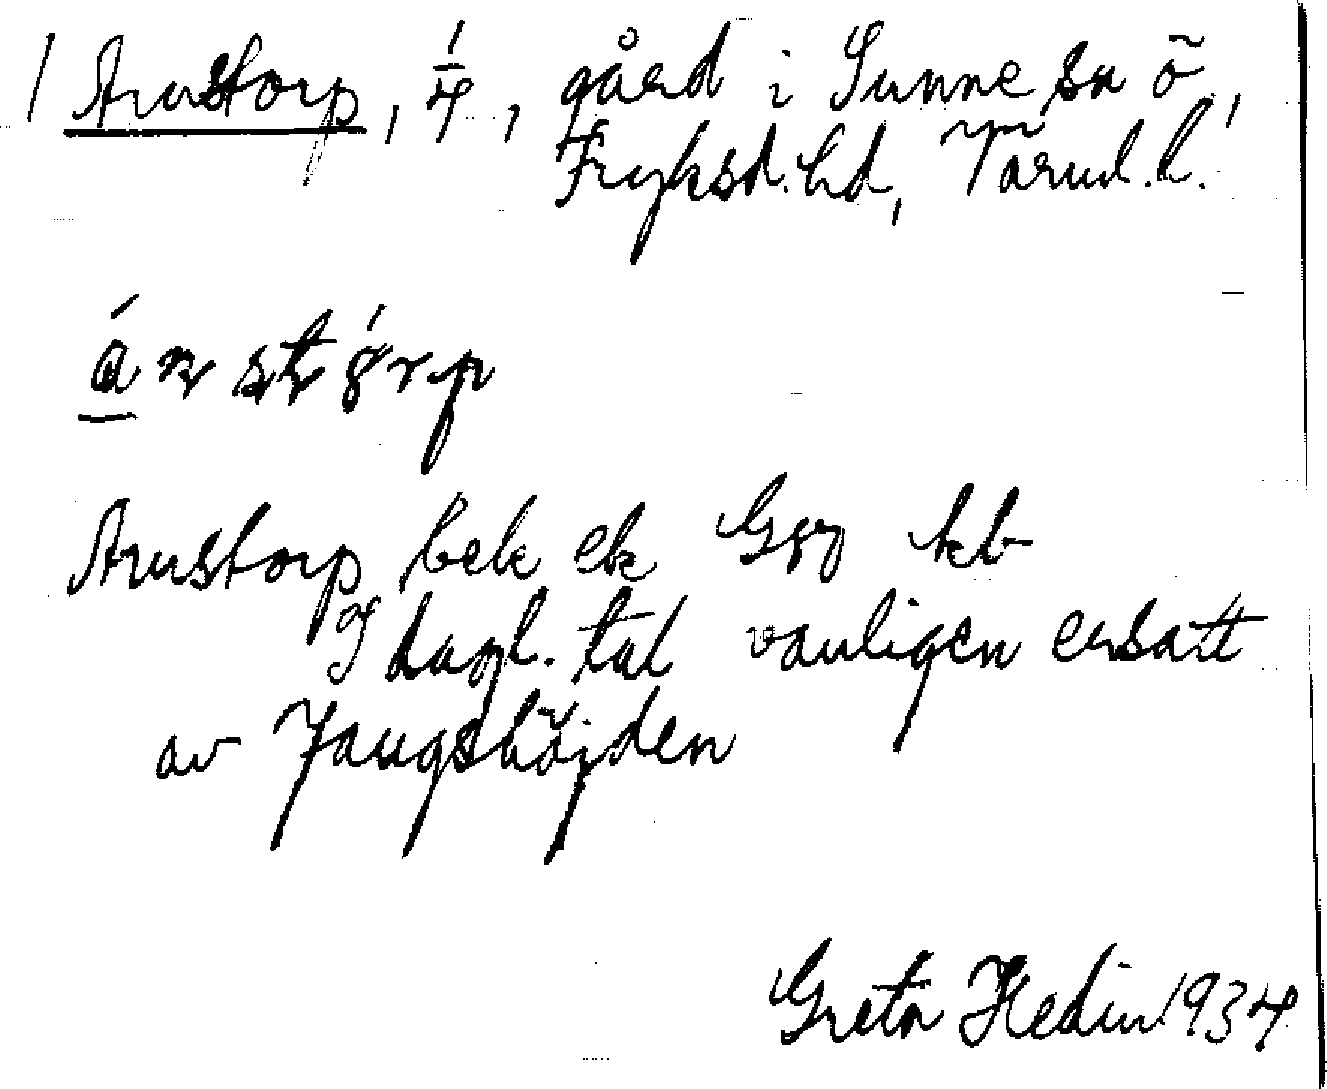 / Arnstorp, 1/4, gård i Sunne sn ö,
Fryksd. hd, Värml. l.
Arnstorp bek ek Gsz kb
I dagl. tal vanligen ersatt
av Jangshöjden
Greta Hedin 1934